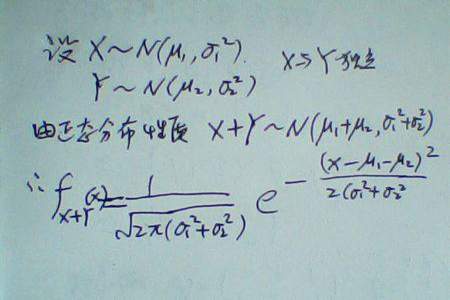 设 X~N(μ₁, σ₁²). X与Y独立
Y~N(μ₂, σ₂²)
由正态分布性质 X+Y~N(μ₁+μ₂, σ₁²+σ₂²)
∴ f_{X+Y}(x) = \frac{1}{\sqrt{2π(σ₁²+σ₂²)}} e^{-\frac{(x-μ₁-μ₂)²}{2(σ₁²+σ₂²}}